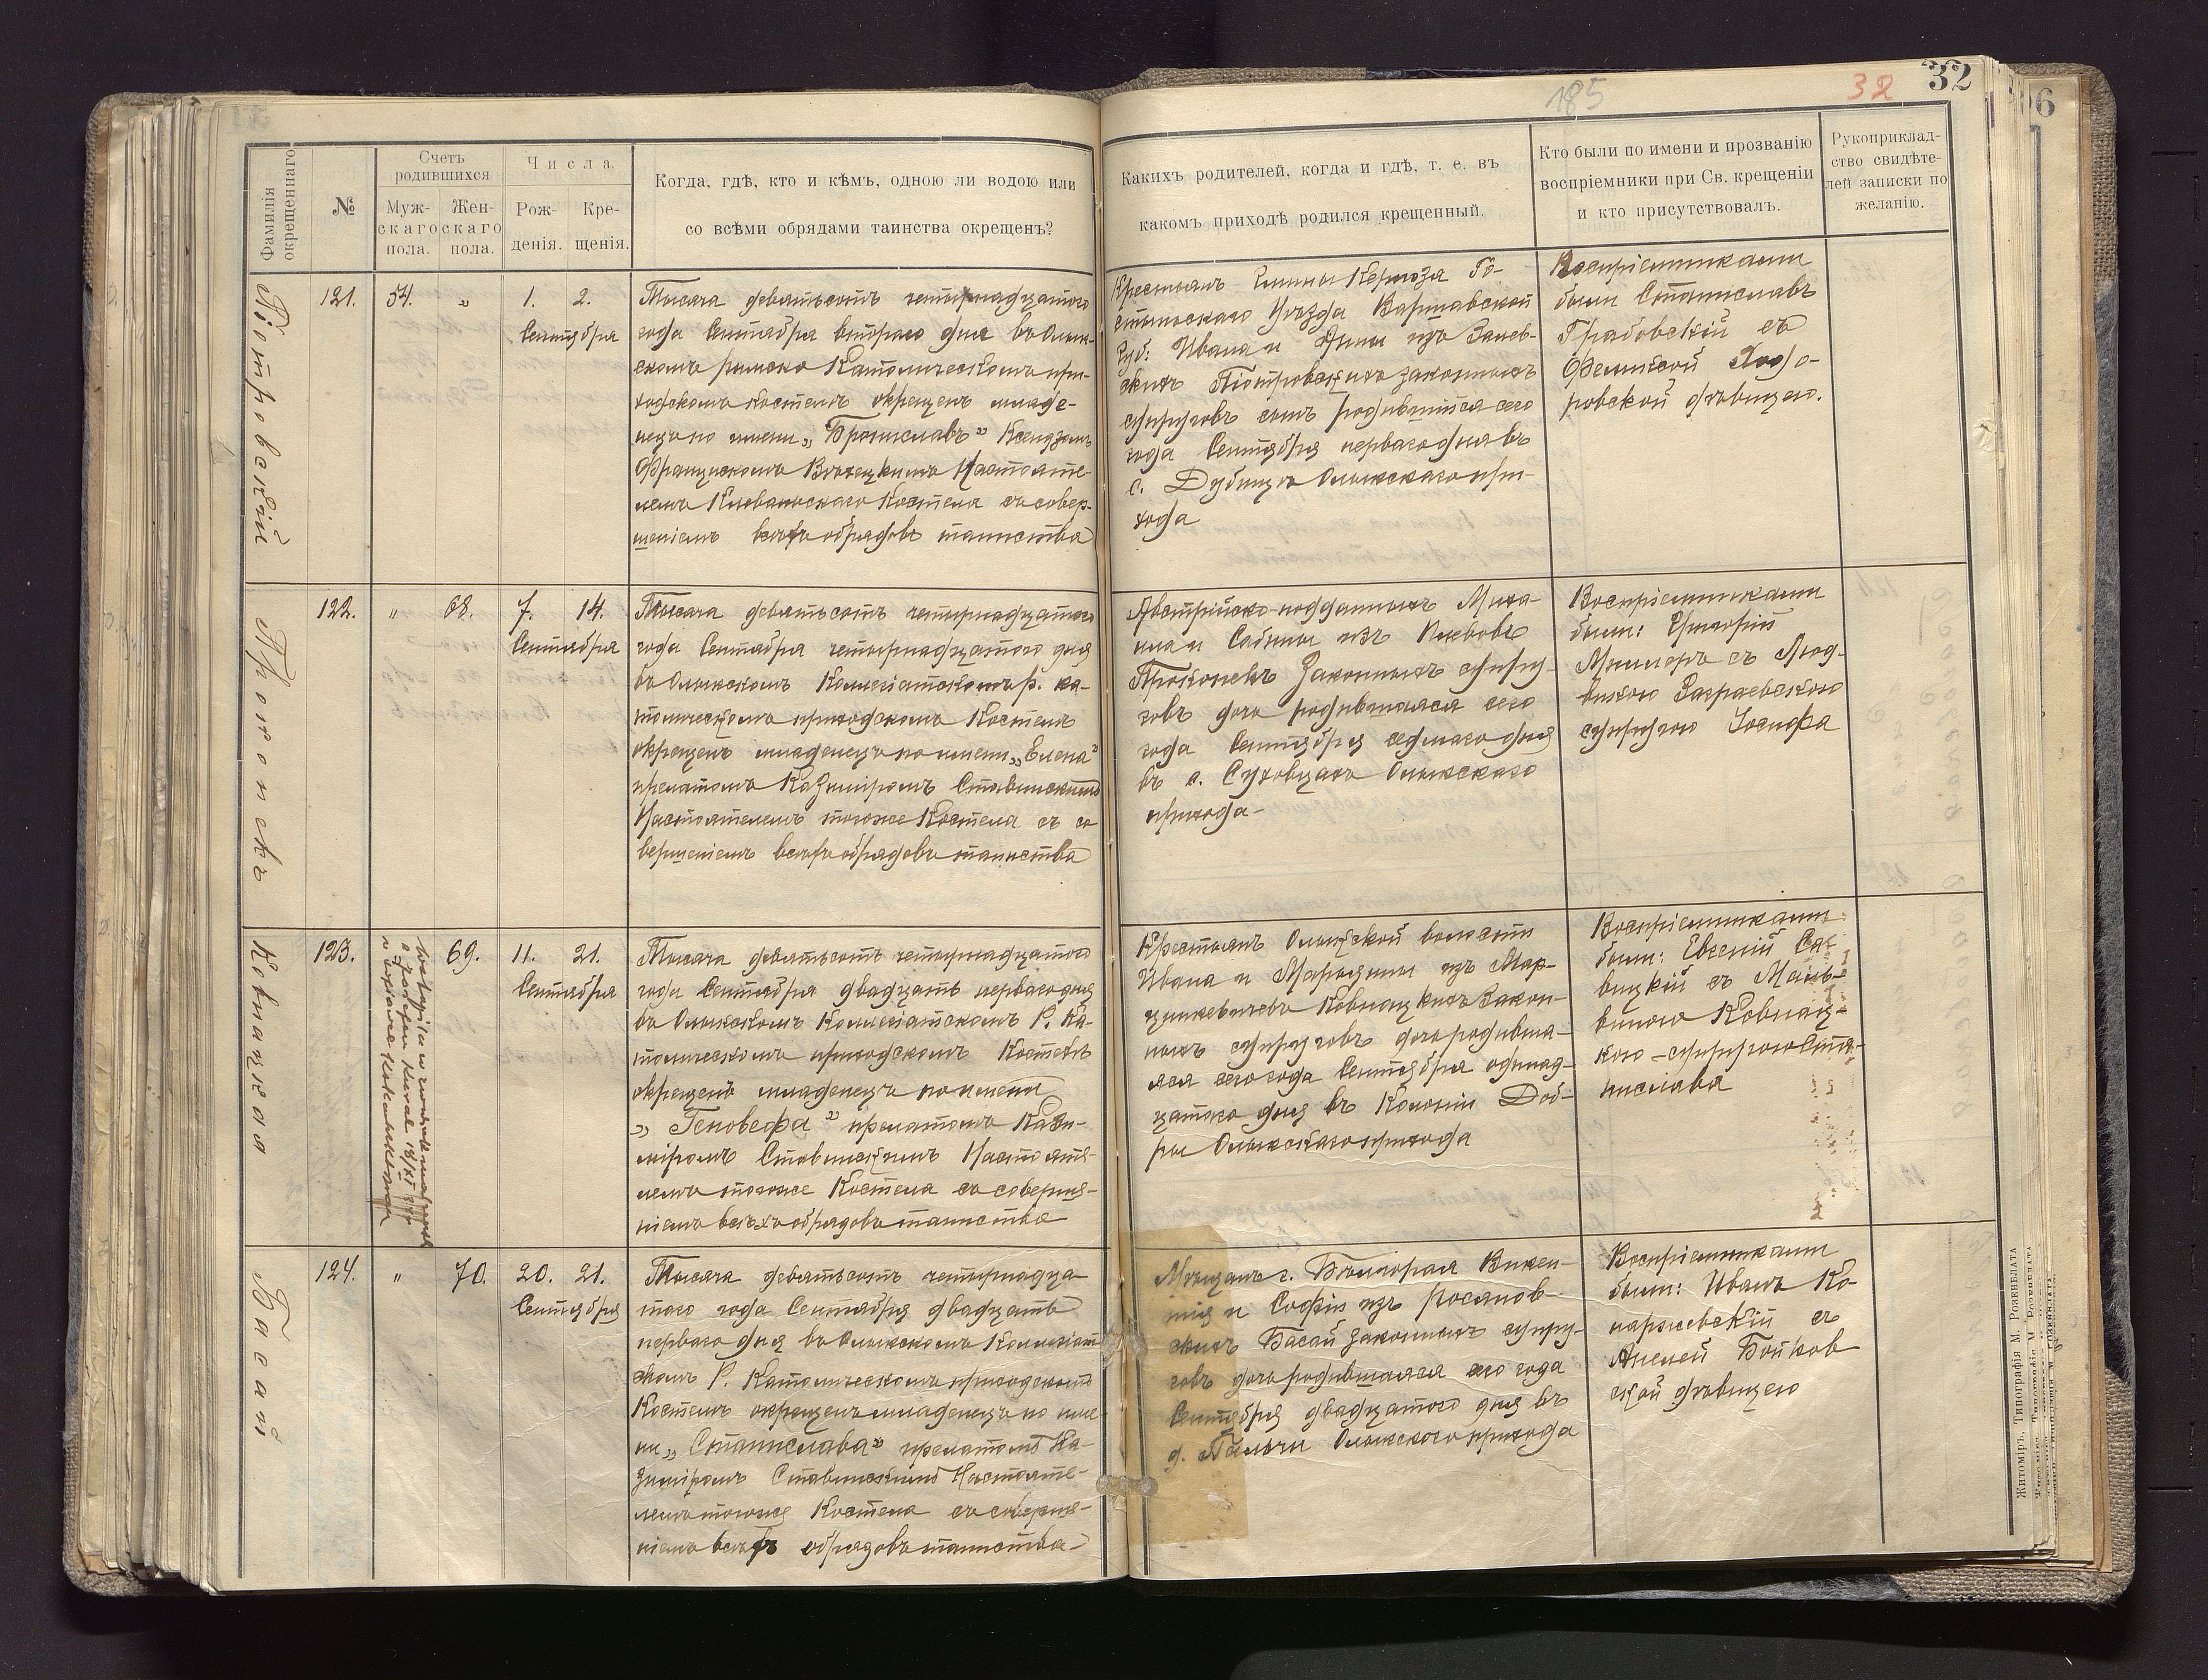 185
32
32
Фамилія окрещеннаго
№
Счетъ родившихся
Муж-
скаго
пола.
Жен-
скаго
пола.
Числа.
Рож-
денія.
Кре-
щенія.
Когда, гдѣ, кто и кѣмъ, одною ли водою или
со всѣми обрядами таинства окрещенъ?
Какихъ родителей, когда и гдѣ, т. е. въ
какомъ приходѣ родился крещенный.
Кто были по имени и прозванію
воспріемники при Св. крещеніи
и кто присутствовалъ.
Рукоприклад-
ство свидѣте-
лей записки по
желанію.
Піотровскій
121. 54. „ 1. 2.
Сентября
Тысяча девятьсотъ четырнадцатого
года Сентября второго дня въ Олык-
скомъ римско Католическомъ при-
ходскомъ Костелѣ окрещенъ младе-
нецъ по имени „Брониславъ" Ксендзомъ
Францискомъ Настояте-
лемъ Клеваньскаго Костела съ совер-
шеніемъ всѣхъ обрядовъ таинства
Крестьянъ Гмины Кернозя Го-
стынскаго Уѣзда Варшавской
Губ: Ивана и Анны изъ Залев-
скихъ Піотровскихъ законныхъ
супруговъ сынъ родившійся сего
года Сентября перваго дня въ
с. Дубищѣ Олыкскаго при-
хода
Воспріемниками
были Станиславъ
Грабовскій съ
Феликсой Ходо-
ровской дѣвицею.
Прокопекъ
122. „ 68. 7. 14.
Сентября
Тысяча девятьсотъ четырнадцатого
года Сентября четырнадцатого дня
въ Олыкскомъ Коллегіатскомъ р. ка-
толическомъ приходскомъ Костелѣ
окрещенъ младенецъ по имени „Елена"
прелатомъ Казимиромъ Ставинскимъ
Настоятелемъ тогоже Костела съ со
вершеніемъ всѣхъ обрядовъ таинства
Австрійско-подданныхъ Миха-
ила и Сабины изъ
Прокопекъ Законныхъ супру-
говъ дочь родившаяся сего
года Сентября седмаго дня
въ с. Суховцахъ Олыкскаго
прихода-
Воспріемниками
были: Григорій
Миллеръ съ Люд-
викою Заграевскою
супругою Іосифа
Ковнацкая
123. 69. 11. 21.
Сентября
Тысяча девятьсотъ четырнадцатого
года Сентября двадцать перваго дня
въ Олыкскомъ Коллегіатскомъ Р. Ка-
толическомъ приходскомъ Костелѣ
окрещенъ младенецъ по имени
„Геновефа" прелатомъ Кази-
миромъ Ставинскимъ Настояте-
лемъ тогоже Костела съ соверше-
ніемъ всѣхъ обрядовъ таинства
Крестьянъ Олыкской волости
Ивана и Марцыны изъ Мар-
цинкевичевъ Ковнацкихъ Закон-
ныхъ супруговъ дочь родивша-
яся сего года Сентября одинад-
цатого дня въ Колоніи Доб-
ры Олыкскаго прихода
Воспріемниками
были: Евгеній Са-
вицкій съ Маль-
виною Ковнац-
кою - супругою Ста-
нислава
Басай
124. „ 70. 20. 21.
Сентября
Тысяча девятьсотъ четырнадца
того года Сентября двадцать
перваго дня въ Олыкскомъ Коллегіат
скомъ Р. Католическомъ приходскомъ
Костелѣ окрещенъ младенецъ по име
ни „Станислава" прелатомъ Ка-
зимиромъ Ставинскимъ Настояте-
лемъ тогоже Костела съ соверше-
ніемъ всѣхъ обрядовъ таинства
Мѣщанъ г. Бѣлгорая Викен-
тія и Софіи изъ Росянов-
скихъ Басай законныхъ супру-
говъ дочь родившаяся сего года
Сентября двадцатого дня въ
д. Пальчи Олыкского прихода
Воспріемниками
были: Иванъ Ко-
наржевскій съ
Анелей Бойков
ской дѣвицею
Житоміръ, Типографія М. Розенблата